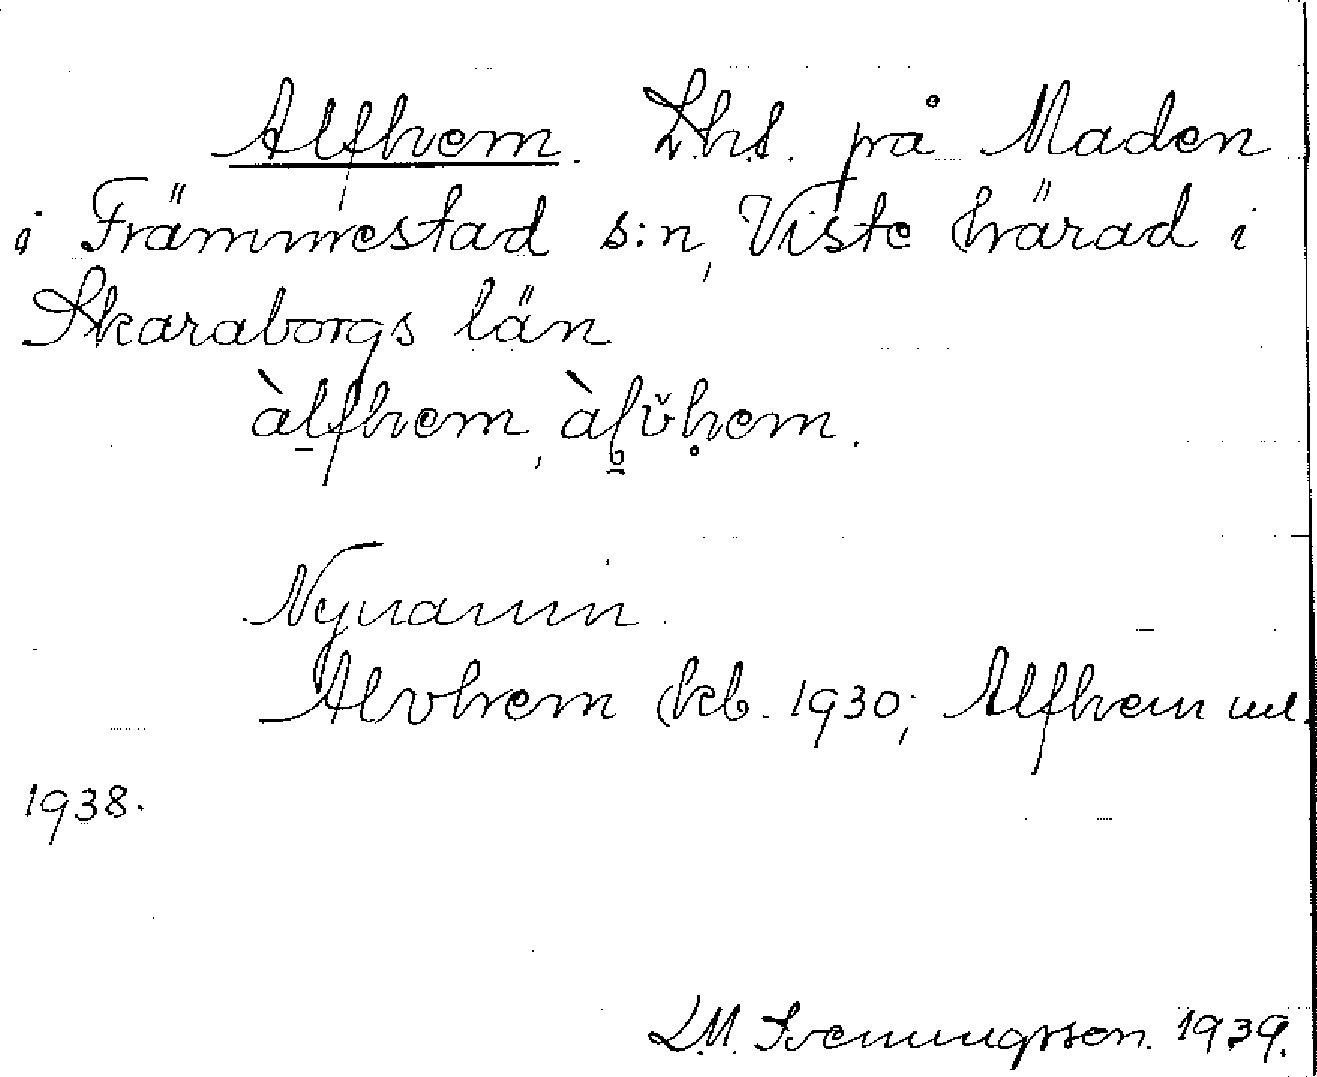 Alfhem. L.h.t. på Maden
i Främmestad s:n, Viste härad i
Skaraborgs län
àlfhem, àlv̆hem.
Nynamn.
Alvhem kb. 1930; Alfhem ml.
1938.
L.M. Svenungsson. 1939.